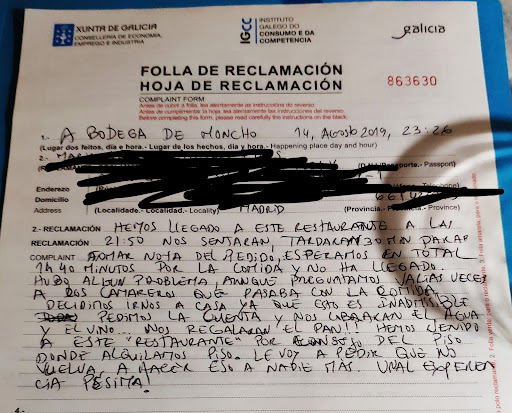 XUNTA DE GALICIA
CONSELLERÍA DE ECONOMÍA,
EMPREGO E INDUSTRIA
IGCC
INSTITUTO
GALEGO DO
CONSUMO E DA
COMPETENCIA
galicia
FOLLA DE RECLAMACIÓN
HOJA DE RECLAMACIÓN
COMPLAINT FORM
863630
Antes de cubrir a folla, lea atentamente as instruccións do reverso.
Antes de cumplimentar la hoja, lea atentamente las instrucciones del reverso.
Before completing this form, please read carefully the instructions on the back.
1.- A BODEGA DE MONCHO 14, AGOSTO 2019, 23:26
(Lugar dos feitos, día e hora.- Lugar de los hechos, día y hora.- Happening place day and hour)
2.- MAR
Passaporte.- Passport)
Enderezo
Domicilio
Address
(Localidade.- Localidad.- Locality) MADRID (Provincia.- Provincia.- Province)
2.- RECLAMACIÓN HEMOS LLEGADO A ESTE RESTAURANTE A LAS
RECLAMACIÓN 21:50 NOS SENTARAN, TARDARAN 30 MIN PARA
COMPLAINT TOMAR NOTA DEL PEDIDO, ESPERAMOS EN TOTAL
1h 40 MINUTOS POR LA COMIDA Y NO HA LLEGADO.
HUBO ALGUN PROBLEMA, AUNQUE PREGUNTAMOS VARIAS VECES
A DOS CAMARERO QUE PASABA CON LA COMIDA.
DECIDIMOS IRNOS A CASA YA QUE ESTO ES INADMISIBLE
PEDIMOS LA CUENTA Y NOS COBRARAN EL AGUA
Y EL VINO... NOS REGALARAN EL PAN!! HEMOS VENIDO
A ESTE "RESTAURANTE" POR CONSEJO DEL PISO
DONDE ALQUILAMOS PISO. LE VOY A PEDIR QUE NO
VUELVA A HACER ESO A NADIE MAS. UNA EXPERIEN
CIA PÉSIMA!